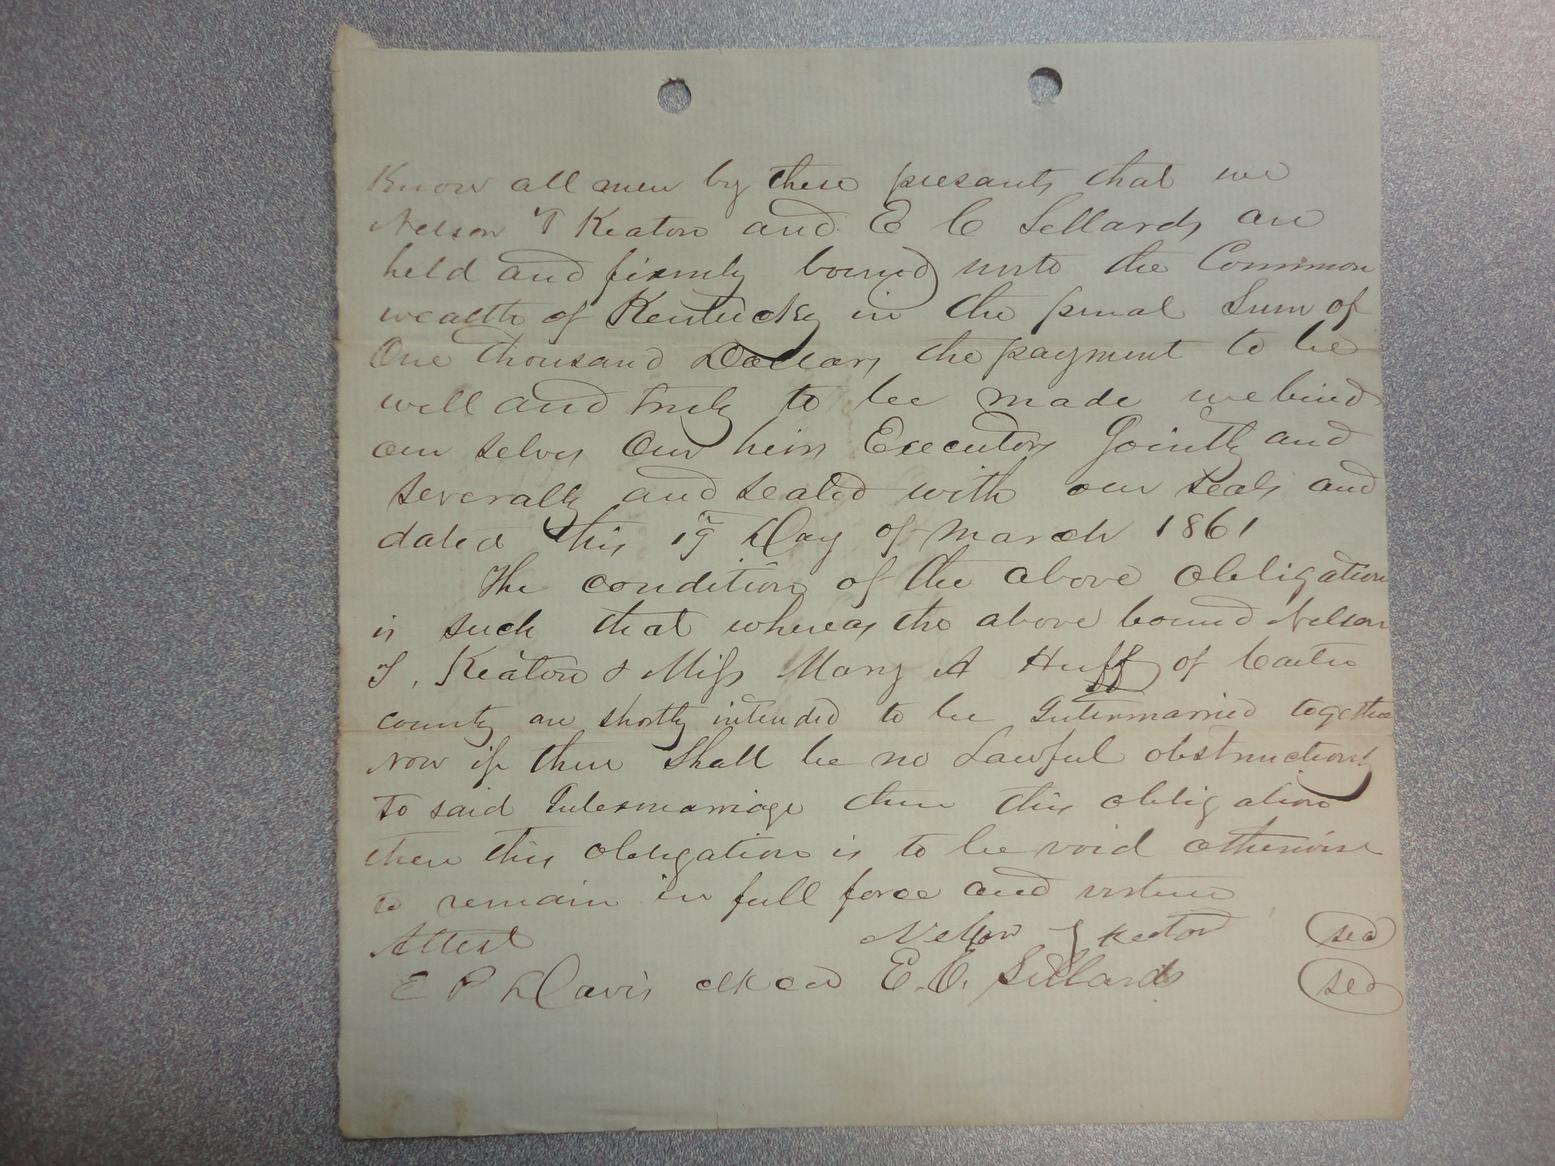 Know all men by these presants that we
Nelson T Keaton and E C Sellards are
held and firmly bound unto the Common
wealth of Kentucky in the penal Sum of
One thousand Dollars the payment to be
well and truly to be made we bind
our selves Our heirs Executors Jointly and
severally and sealed with our seals and
dated this 19 Day of March 1861
The condition of the above obligation
is such that whereas the above bound Nelson
T. Keaton & Miss Mary A Huff of Carter
county are shortly intended to be Intermarried together
Now if there shall be no Lawful obstructions
to said Intermarriage then this obligation
then this obligation is to be void otherwise
to remain in full force and virtue
Attest Nelson T Keaton seal
E P Davis clk E. C. Sellards seal